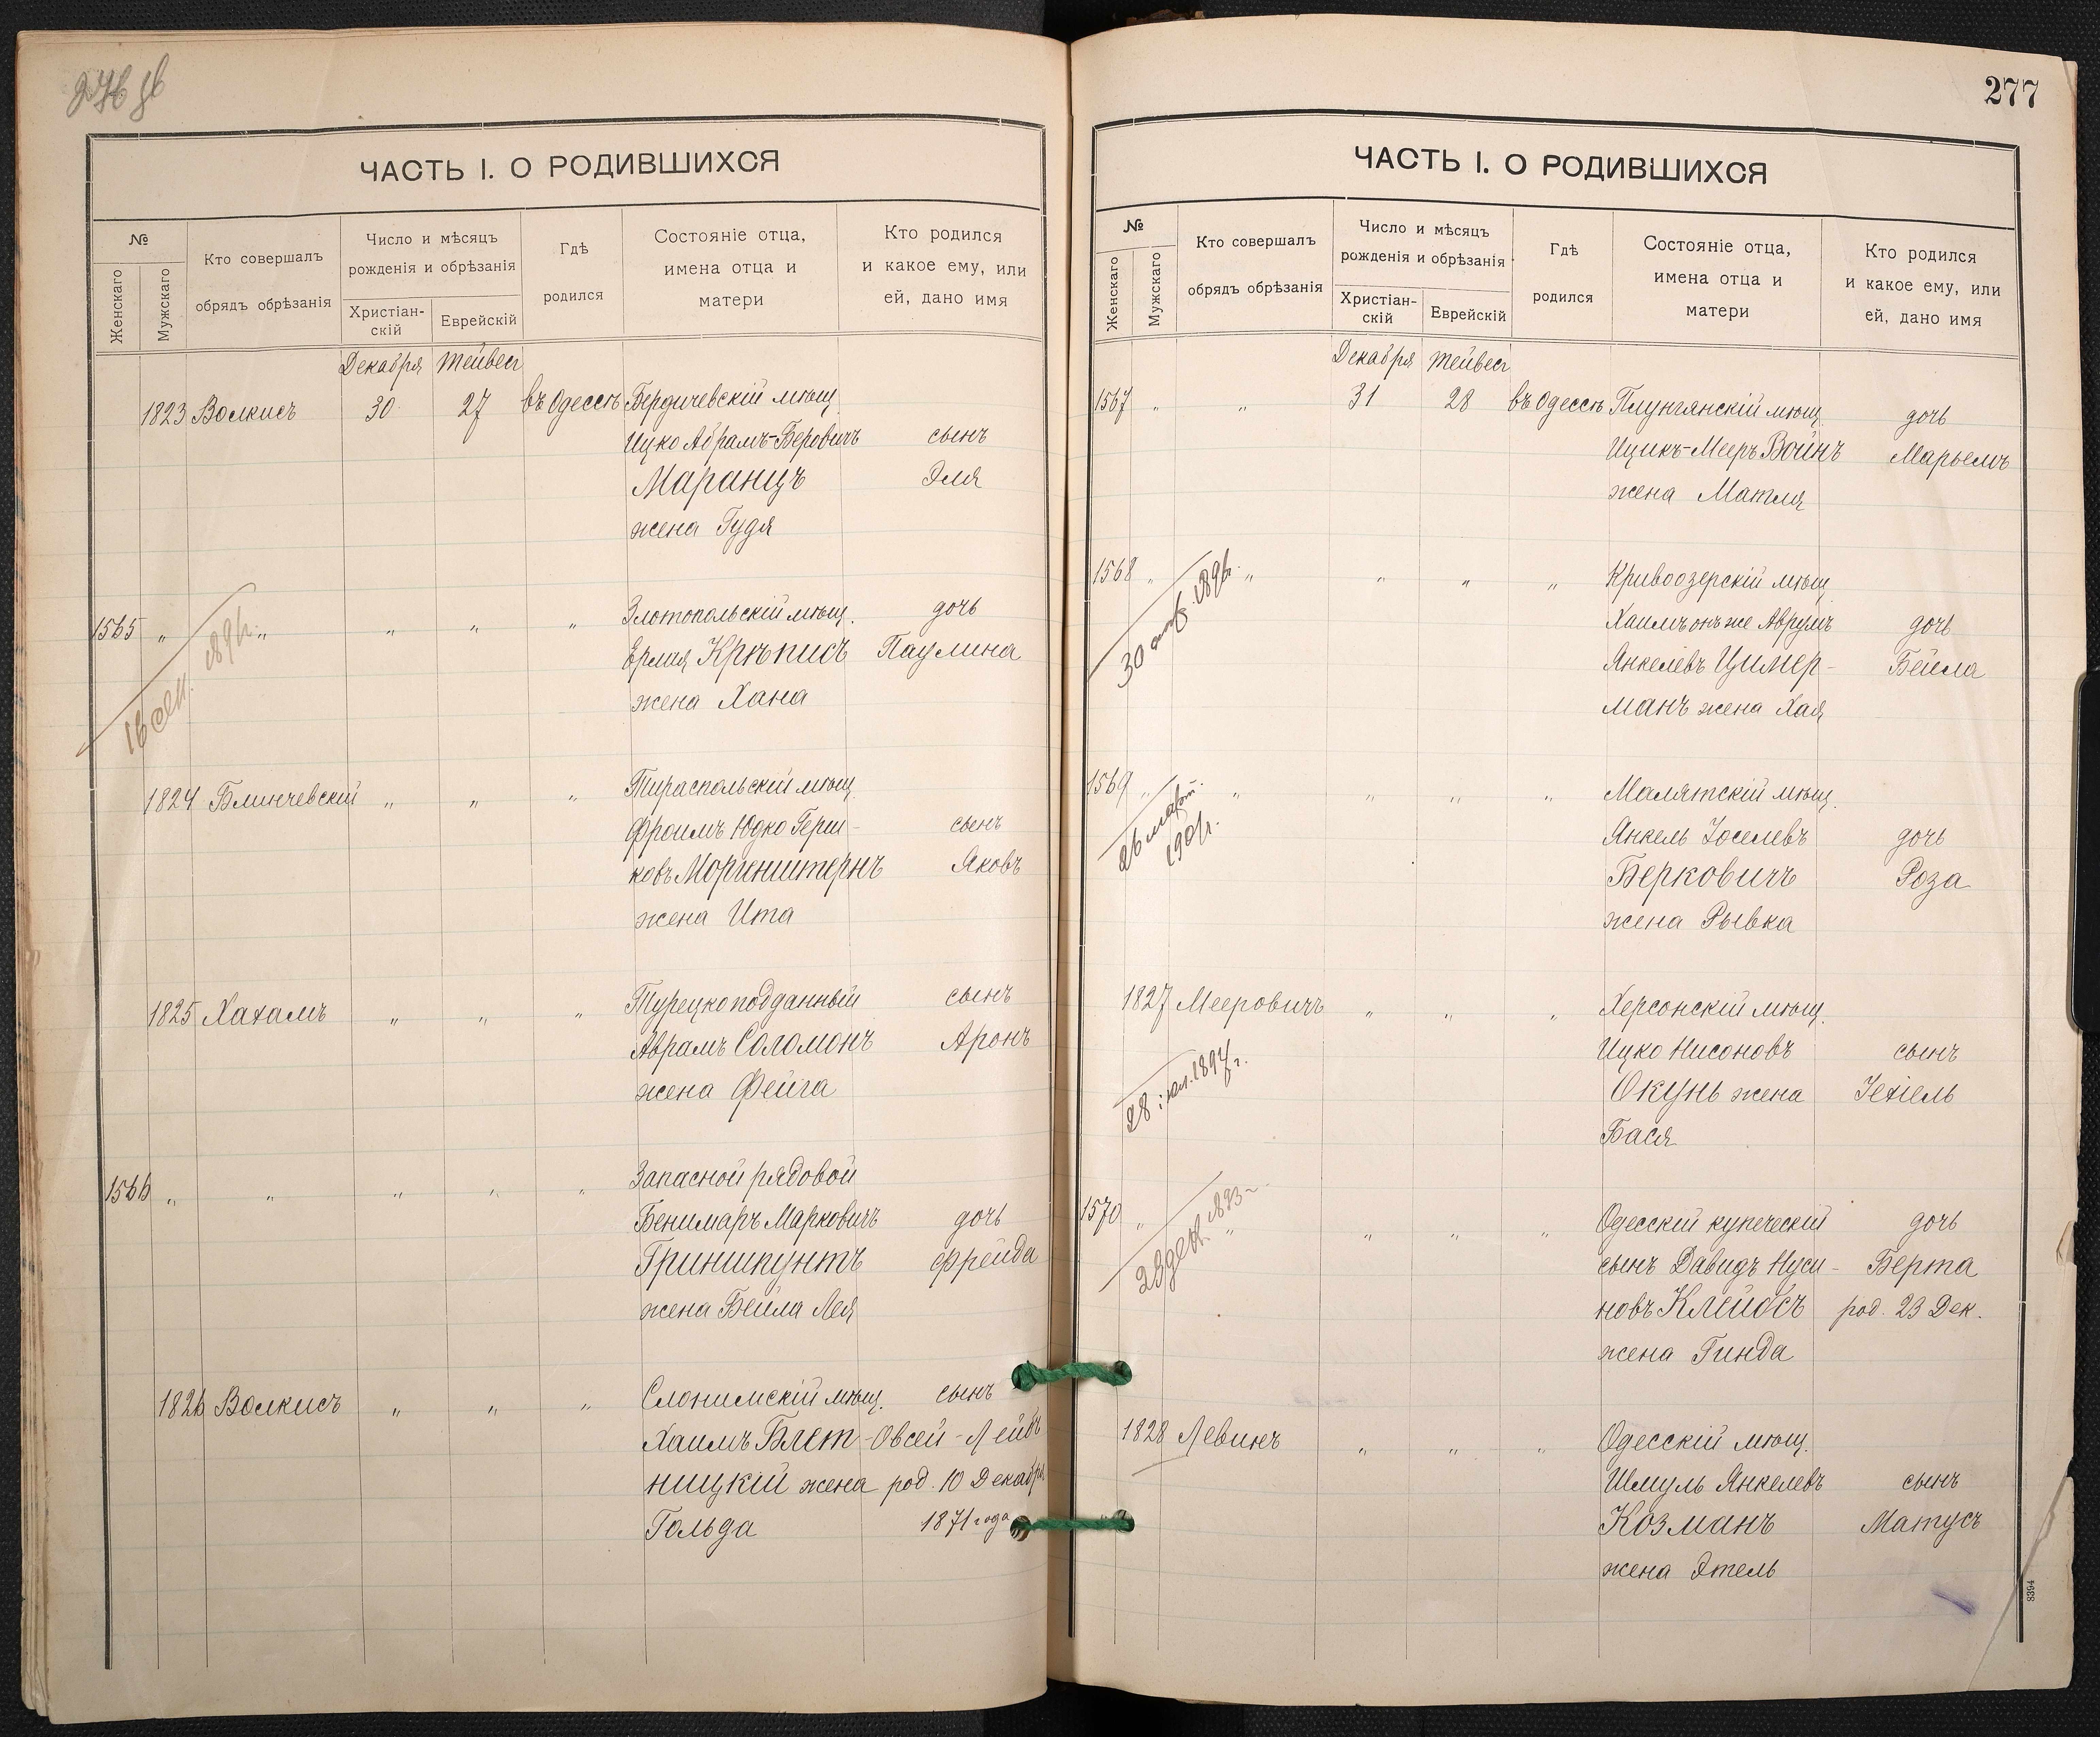 ЧАСТЬ I. О РОДИВШИХСЯ
№
Женскаго
Мужскаго
Кто совершалъ
обрядъ обрѣзанія
Число и мѣсяцъ
рожденія и обрѣзанія
Христіан-
скій
Еврейскій
Гдѣ
родился
Состояніе отца,
имена отца и
матери
Кто родился
и какое ему, или
ей, дано имя
Декабря Тейвес
1823 Волкисъ 30 27 въ Одессѣ Бердичевскій мѣщ.
Ицко Абрамъ-Беровичъ сынъ
Маранцъ Эля
жена Гудя
1565 „ „ „ „ „ Златопольскій мѣщ. дочь
Ермия Крѣписъ Паулина
жена Хана
16 сен. 189
1824 Блинчевскій „ „ „ Тираспольскій мѣщ.
Фроимъ Юдко Герш- сынъ
ковъ Моргенштернъ Яковъ
жена Ита
1825 Хахамъ „ „ „ Турецкоподданный сынъ
Аврамъ Соломонъ Аронъ
жена Фейга
1566 „ „ „ „ „ Запасной рядовой
Бенимаръ Марковичъ дочь
Гриншпунтъ Фрейда
жена Бейла Лея
1826 Волкисъ „ „ „ Слонимскій мѣщ. сынъ
Хаимъ Блет- Овсей-Лейбъ
ницкій жена род. 10 Декабря
Гольда 1871 года
277
ЧАСТЬ I. О РОДИВШИХСЯ
№
Женскаго
Мужскаго
Кто совершалъ
обрядъ обрѣзанія
Число и мѣсяцъ
рожденія и обрѣзанія
Христіан-
скій
Еврейскій
Гдѣ
родился
Состояніе отца,
имена отца и
матери
Кто родился
и какое ему, или
ей, дано имя
Декабря Тейвес
1567 „ „ 31 28 въ Одессѣ Плунгянскій мѣщ. дочь
Ицикъ-Мееръ Войнъ Марьемъ
жена Матля
1568 „ „ „ „ „ Кривоозерскій мѣщ.
Хаимъ онъ же Аврумъ дочь
Анкелевъ Цимер- Бейла
манъ жена Хая
30 189
1569 „ „ „ „ „ Малятскій мѣщ.
Анкель Іоселевъ дочь
Берковичъ Роза
жена Рывка
26 март.
190
1827 Мееровичъ „ „ „ Херсонскій мѣщ.
Ицко Нисоновъ сынъ
Окунь жена Іехіель
Бася
28 іюл. 1894 г.
1570 „ „ „ „ „ Одесскій купеческій дочь
сынъ Давидъ Нуси- Берта
новъ Клейосъ род. 23 Дек.
жена Гинда
23 дек. 1893
1828 Левинъ „ „ „ Одесскій мѣщ.
Шмуль Янкелевъ сынъ
Козманъ Матусъ
жена Этель
8394